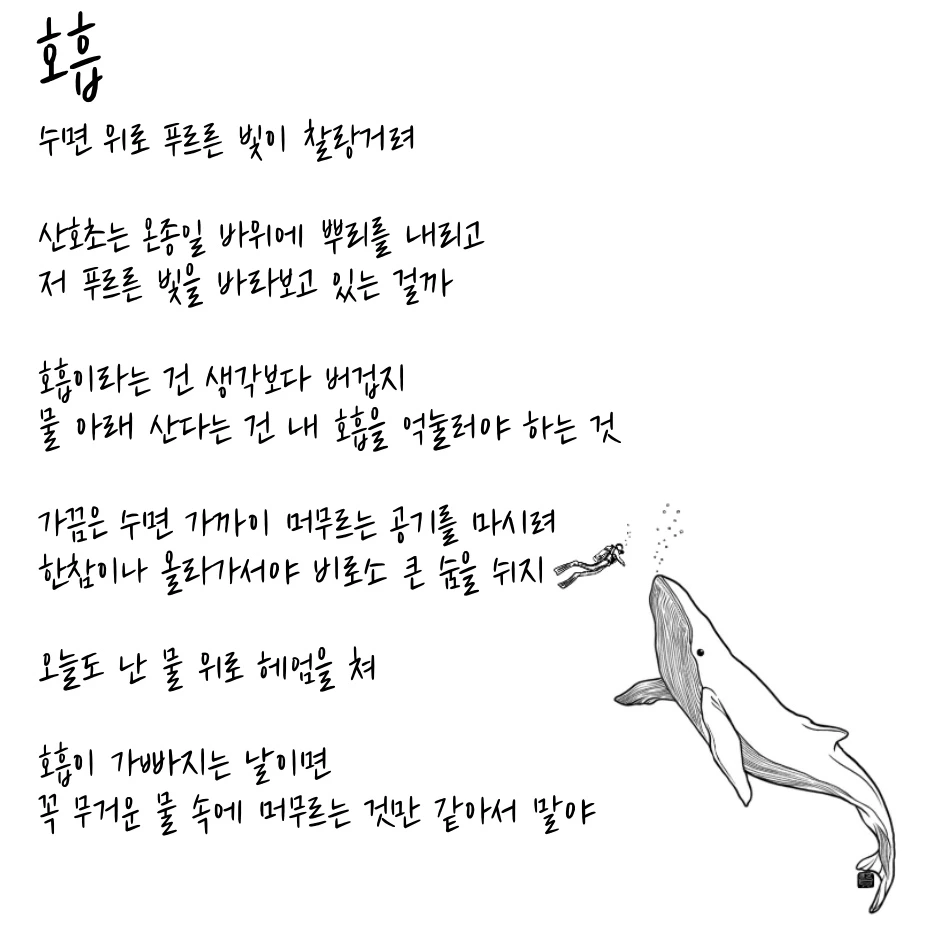 호흡
수면 위로 푸르른 빛이 찰랑거려
산호초는 온종일 바위에 뿌리를 내리고
저 푸르른 빛을 바라보고 있는 걸까
호흡이라는 건 생각보다 버겁지
물 아래 산다는 건 내 호흡을 억눌러야 하는 것
가끔은 수면 가까이 머무르는 공기를 마시려
한참이나 올라가서야 비로소 큰 숨을 쉬지
오늘도 난 물 위로 헤엄을 쳐
호흡이 가빠지는 날이면
꼭 무거운 물 속에 머무르는 것만 같아서 말야